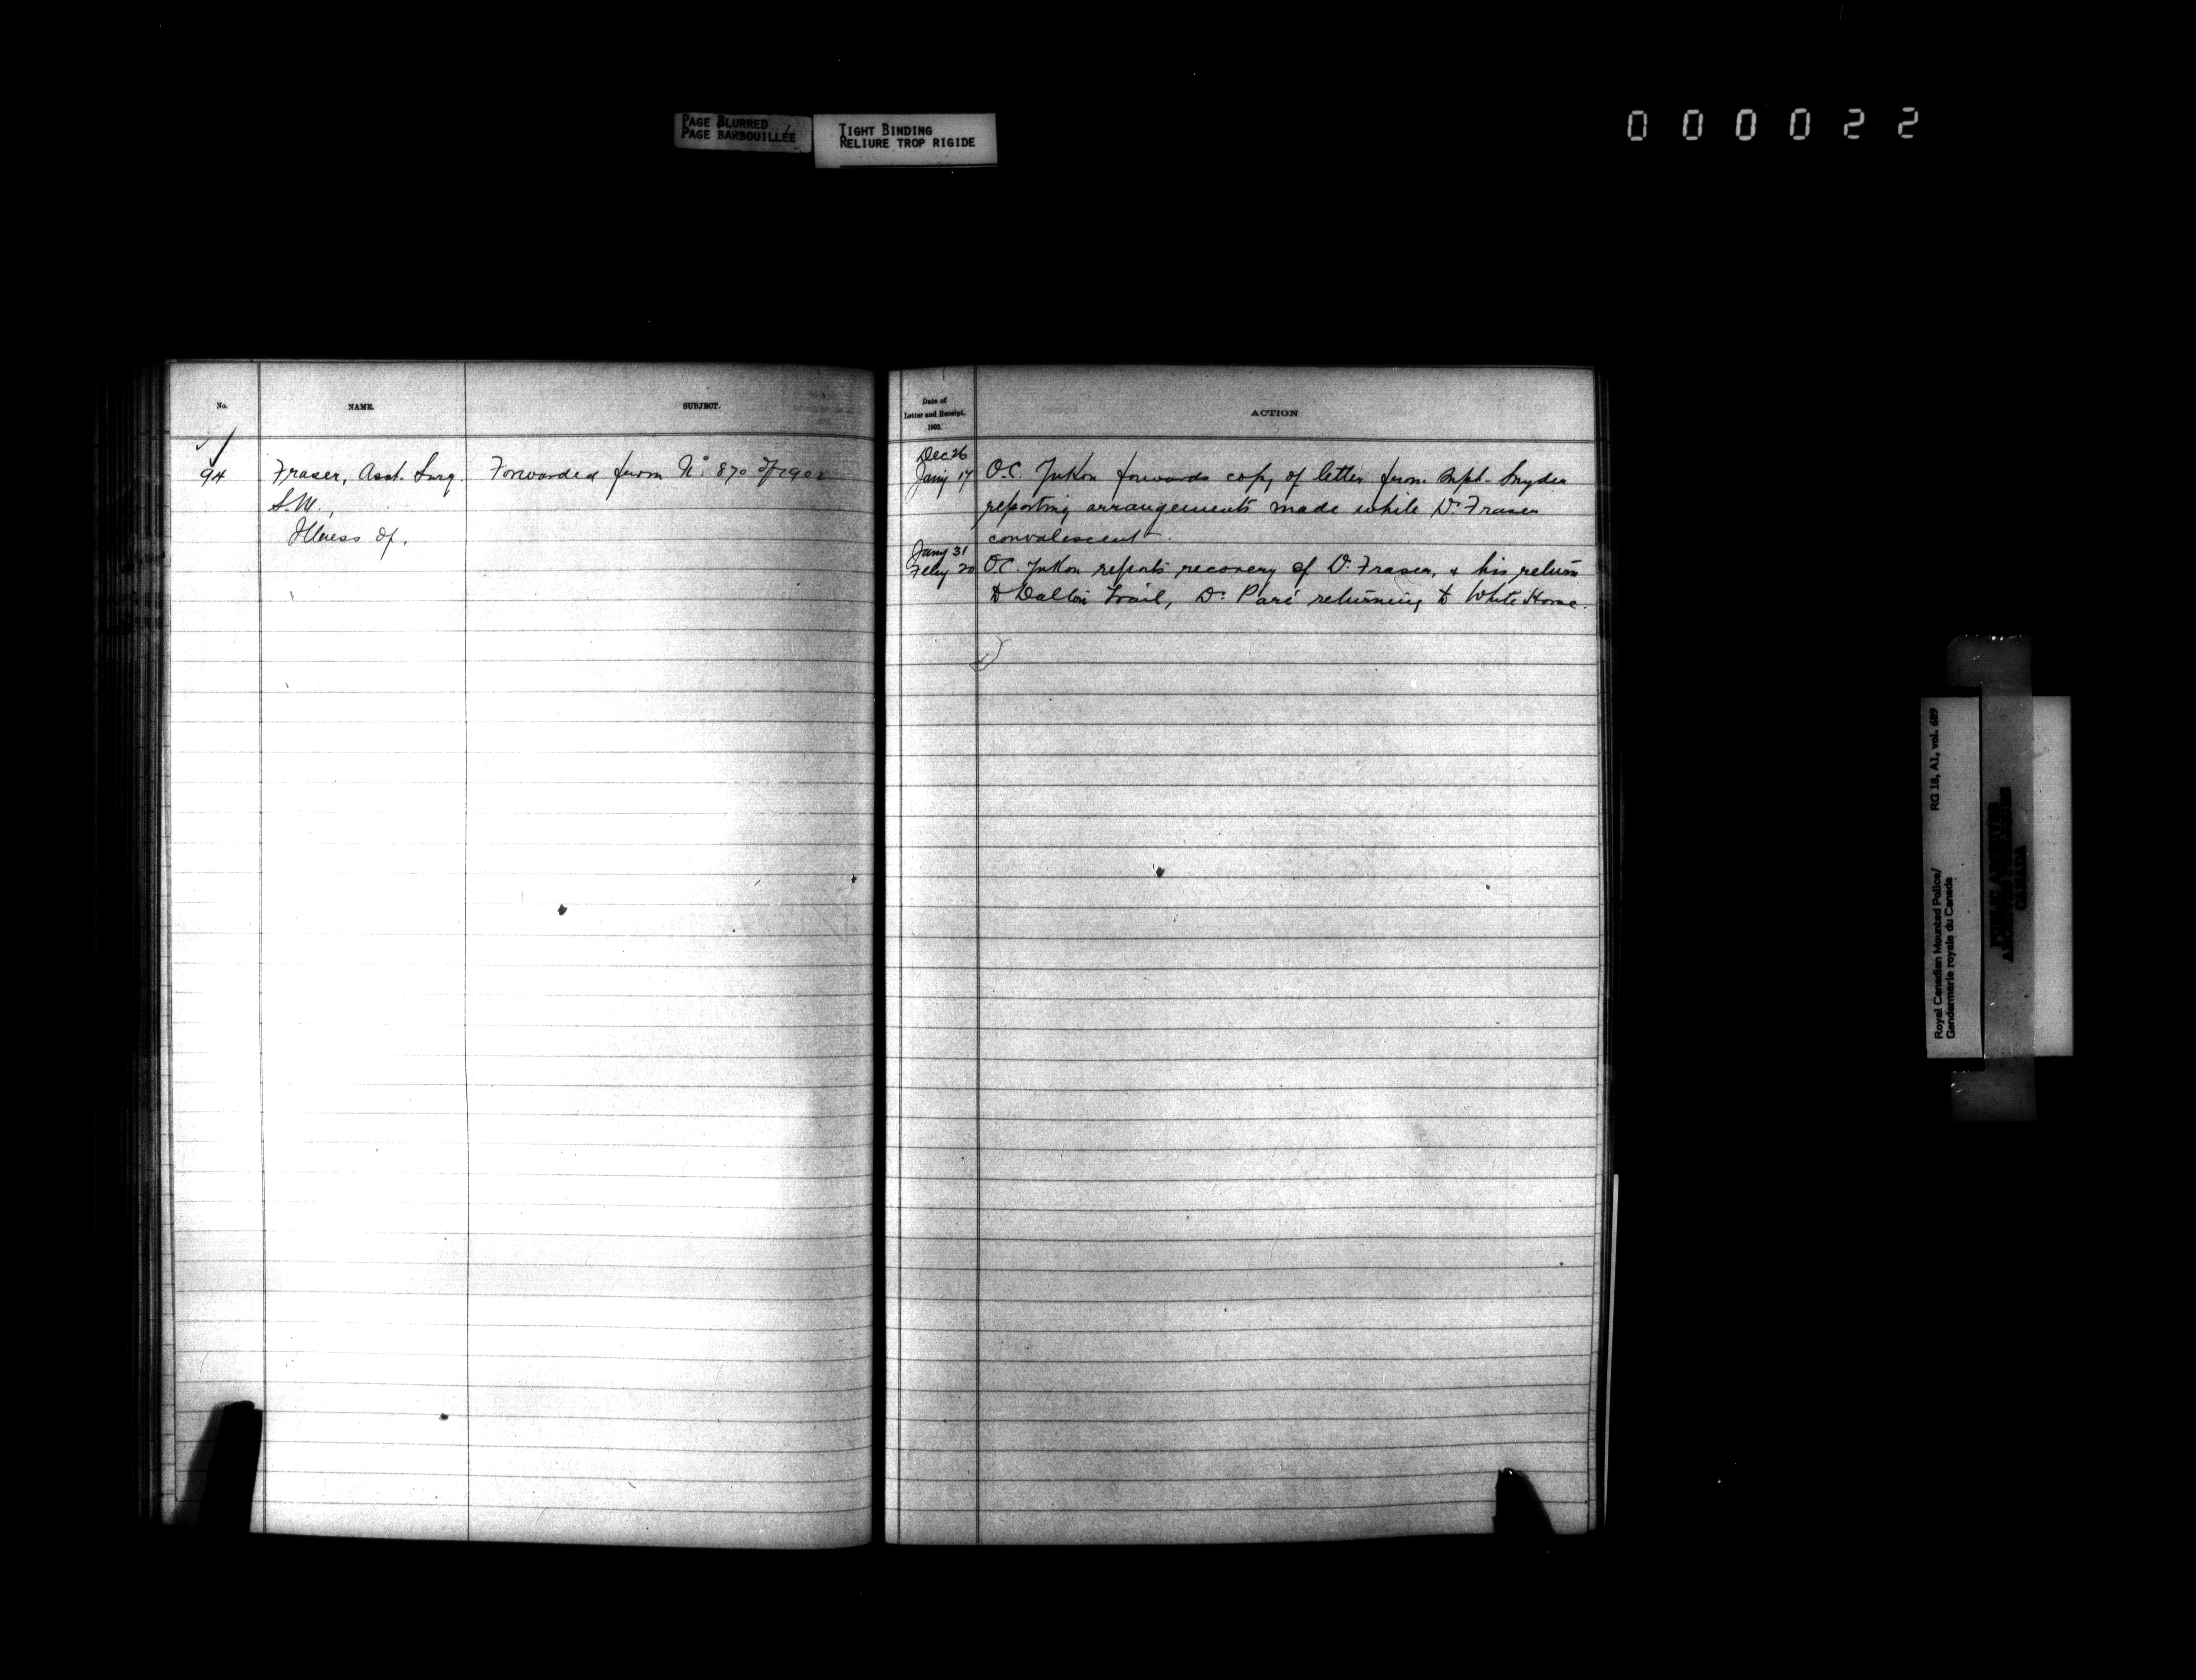 PAGE BLURRED
PAGE BARBOUILLÉE
TIGHT BINDING
RELIURE TROP RIGIDE
000022
No.
NAME.
SUBJECT.
94
Fraser, Asst. Surg.
S.M.,
Illness of,
Forwarded from No. 870 of 1902
Date of
Letter and Receipt.
1903.
ACTION
Dec. 26
Jany 17 O.C. Yukon forwards copy of letter from Supt. Snyder
reporting arrangements made while Dr. Fraser
convalescent.
Jany 31
Feby 20 O.C. Yukon reports recovery of Dr. Fraser, & his return
to Dalton Trail, Dr. Paré returning to White Horse.
Royal Canadian Mounted Police/ RG 18, A1, vol. 689
Gendarmerie royale du Canada
PUBLIC ARCHIVES
ARCHIVES PUBLIQUES
CANADA